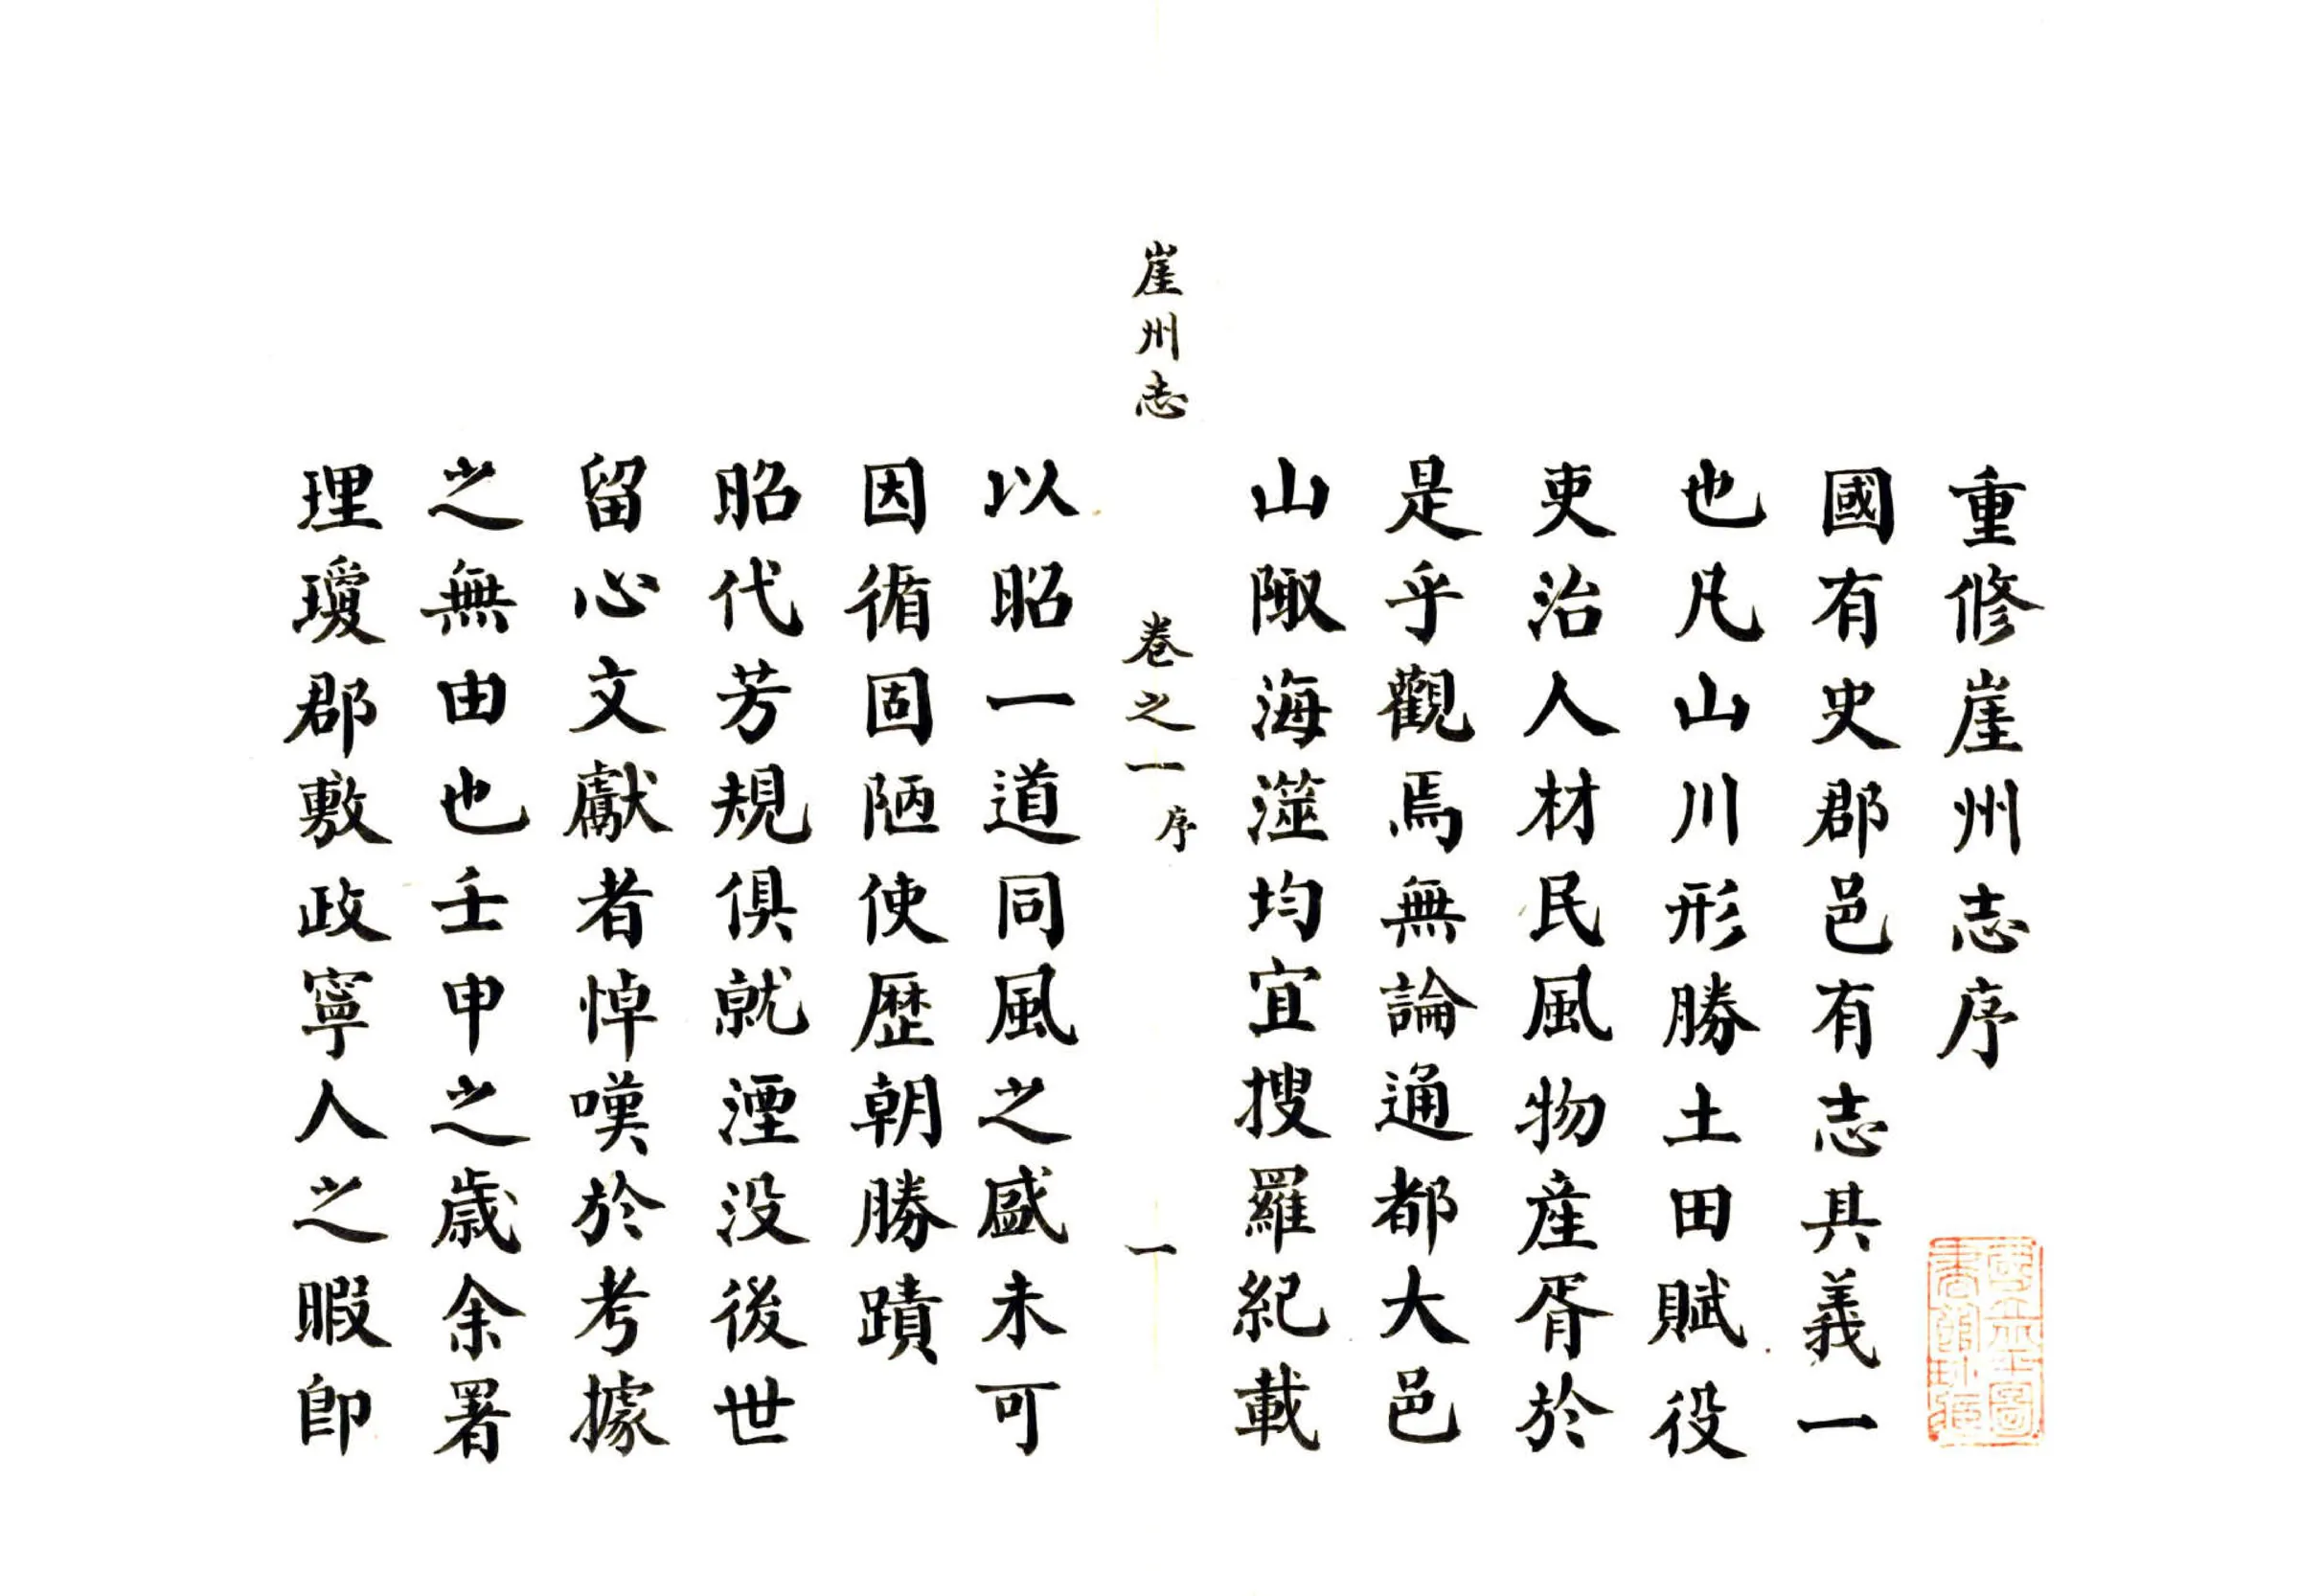 重修崖州志序
國有史郡邑有志其義一
也凡山川形勝土田賦役
吏治人材民風物産胥於
是乎觀焉無論通都大邑
山陬海澨均宜搜羅紀載
崖州志 卷之一 序 一
以昭一道同風之盛未可
因循固陋使歴朝勝蹟
昭代芳規俱就湮没後世
留心文獻者悼嘆於考據
之無由也壬申之歳余署
理瓊郡敷政寧人之暇即